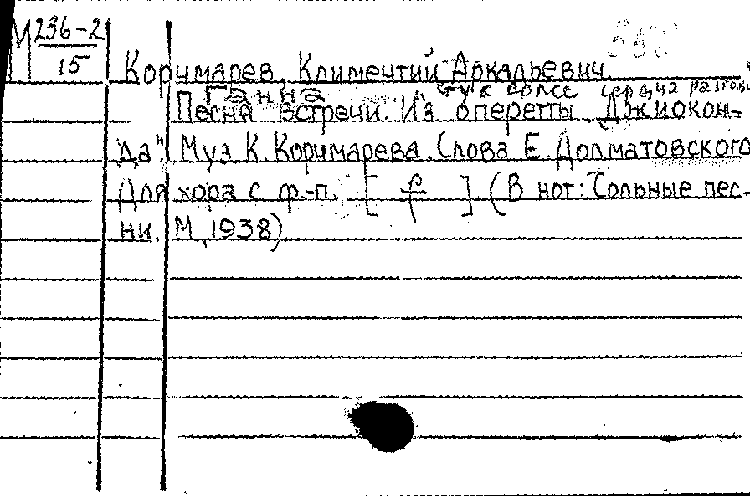 М 236-2
15
Корчмарев, Климентий Аркадьевич.
Песня встречи. Из оперетты "Джиокон-
да". Муз. К. Корчмарева. Слова Е. Долматовского
Для хора с ф.-п. [ ] (В нот: Сольные пес-
ни. М., 1938)